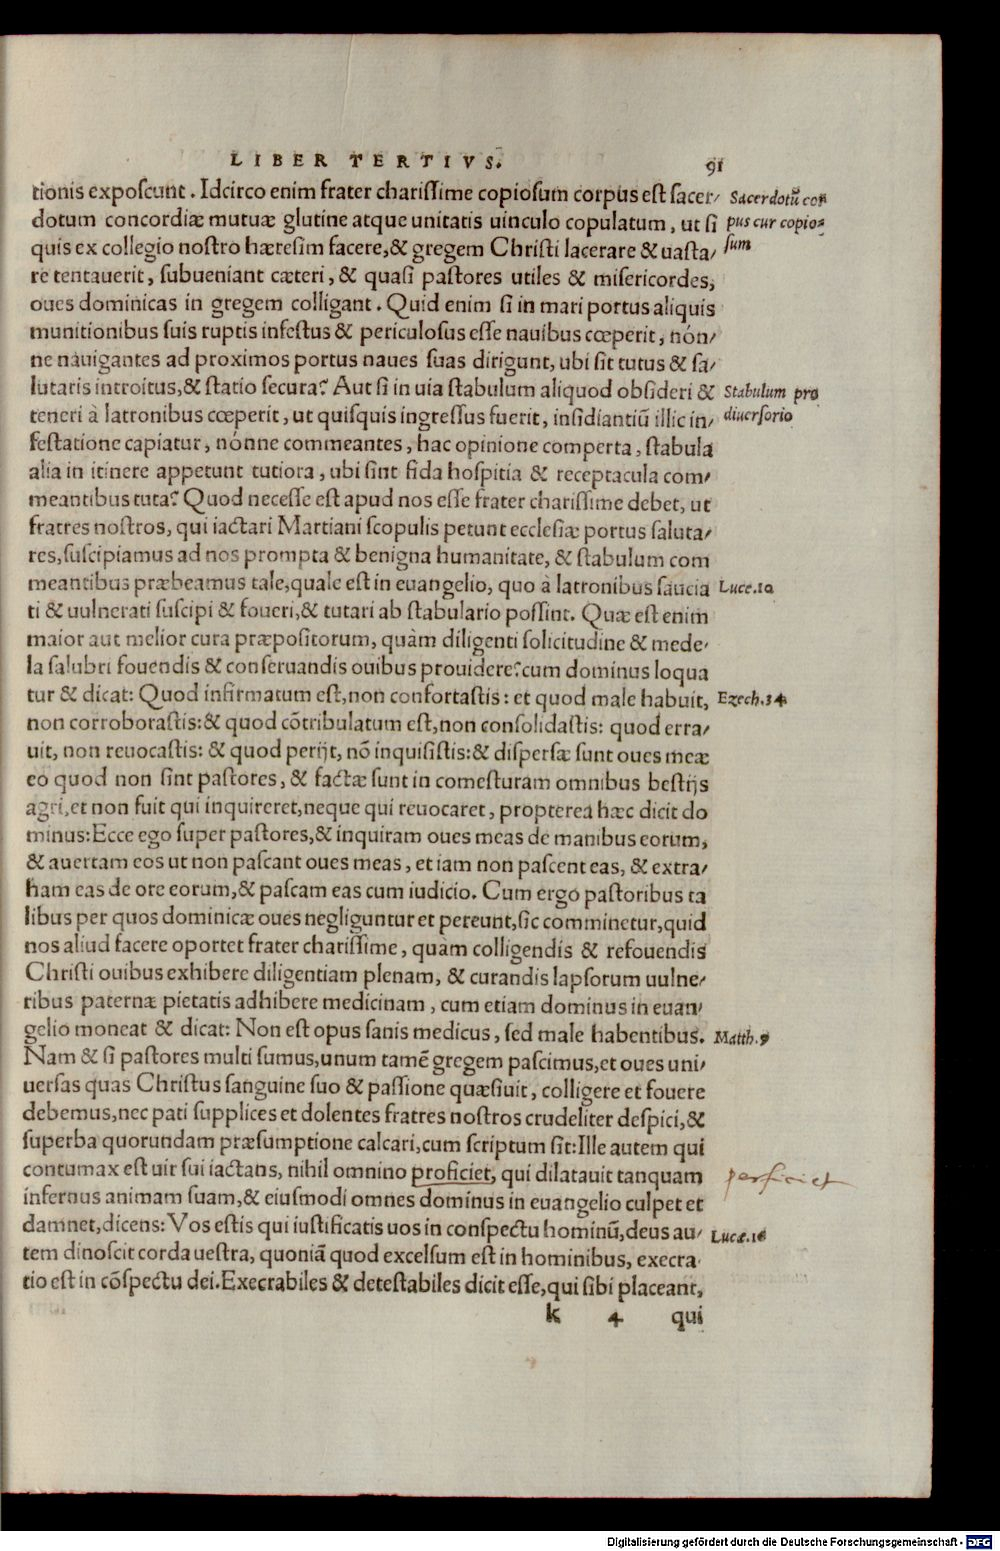 LIBER TERTIVS. 91
tionis exposcunt. Idcirco enim frater charissime copiosum corpus est sacer/
dotum concordiæ mutuæ glutine atque unitatis uinculo copulatum, ut si
quis ex collegio nostro hæresim facere,& gregem Christi lacerare & uasta/
re tentauerit, subueniant cæteri, & quasi pastores utiles & misericordes,
oues dominicas in gregem colligant. Quid enim si in mari portus aliquis
munitionibus suis ruptis infestus & periculosus esse nauibus cœperit, nón/
ne nauigantes ad proximos portus naues suas dirigunt, ubi sit tutus & sa/
lutaris introitus,& statio secura? Aut si in uia stabulum aliquod obsideri &
teneri à latronibus cœperit, ut quisquis ingressus fuerit, insidiantiũ illic in/
festatione capiatur, nónne commeantes, hac opinione comperta, stabula
alia in itinere appetunt tutiora, ubi sint fida hospitia & receptacula com/
meantibus tuta? Quod necesse est apud nos esse frater charissime debet, ut
fratres nostros, qui iactari Martiani scopulis petunt ecclesiæ portus saluta/
res,suscipiamus ad nos prompta & benigna humanitate, & stabulum com
meantibus præbeamus tale,quale est in euangelio, quo à latronibus saucia
ti & uulnerati suscipi & foueri,& tutari ab stabulario possint. Quæ est enim
maior aut melior cura præpositorum, quàm diligenti solicitudine & mede/
la salubri fouendis & conseruandis ouibus prouidere?cum dominus loqua
tur & dicat: Quod infirmatum est,non confortastis: et quod male habuit,
non corroborastis:& quod cõtribulatum est,non consolidastis: quod erra/
uit, non reuocastis: & quod perijt, nõ inquisistis:& dispersæ sunt oues meæ
eo quod non sint pastores, & factæ sunt in comesturam omnibus bestijs
agri,et non fuit qui inquireret,neque qui reuocaret, propterea hæc dicit do
minus:Ecce ego super pastores,& inquiram oues meas de manibus eorum,
& auertam eos ut non pascant oues meas, et iam non pascent eas, & extra/
ham eas de ore eorum,& pascam eas cum iudicio. Cum ergo pastoribus ta
libus per quos dominicæ oues negliguntur et pereunt,sic comminetur,quid
nos aliud facere oportet frater charissime, quàm colligendis & refouendis
Christi ouibus exhibere diligentiam plenam, & curandis lapsorum uulne/
ribus paternæ pietatis adhibere medicinam, cum etiam dominus in euan/
gelio moneat & dicat: Non est opus sanis medicus, sed male habentibus.
Nam & si pastores multi sumus,unum tamẽ gregem pascimus,et oues uni/
uersas quas Christus sanguine suo & passione quæsiuit, colligere et fouere
debemus,nec pati supplices et dolentes fratres nostros crudeliter despici,&
superba quorundam præsumptione calcari,cum scriptum sit:Ille autem qui
contumax est uir sui iactans, nihil omnino proficiet, qui dilatauit tanquam
infernus animam suam,& eiusmodi omnes dominus in euangelio culpet et
damnet,dicens: Vos estis qui iustificatis uos in conspectu hominũ,deus au/
tem dinoscit corda uestra, quoniã quod excelsum est in hominibus, execra/
tio est in cõspectu dei.Execrabiles & detestabiles dicit esse,qui sibi placeant,
k 4 qui
Sacerdotũ cor
pus cur copio=
sum
Stabulum pro
diuersorio
Luce.10
Ezech.34
Matth.9
perficiet
Lucæ.16
Digitalisierung gefördert durch die Deutsche Forschungsgemeinschaft - DFG